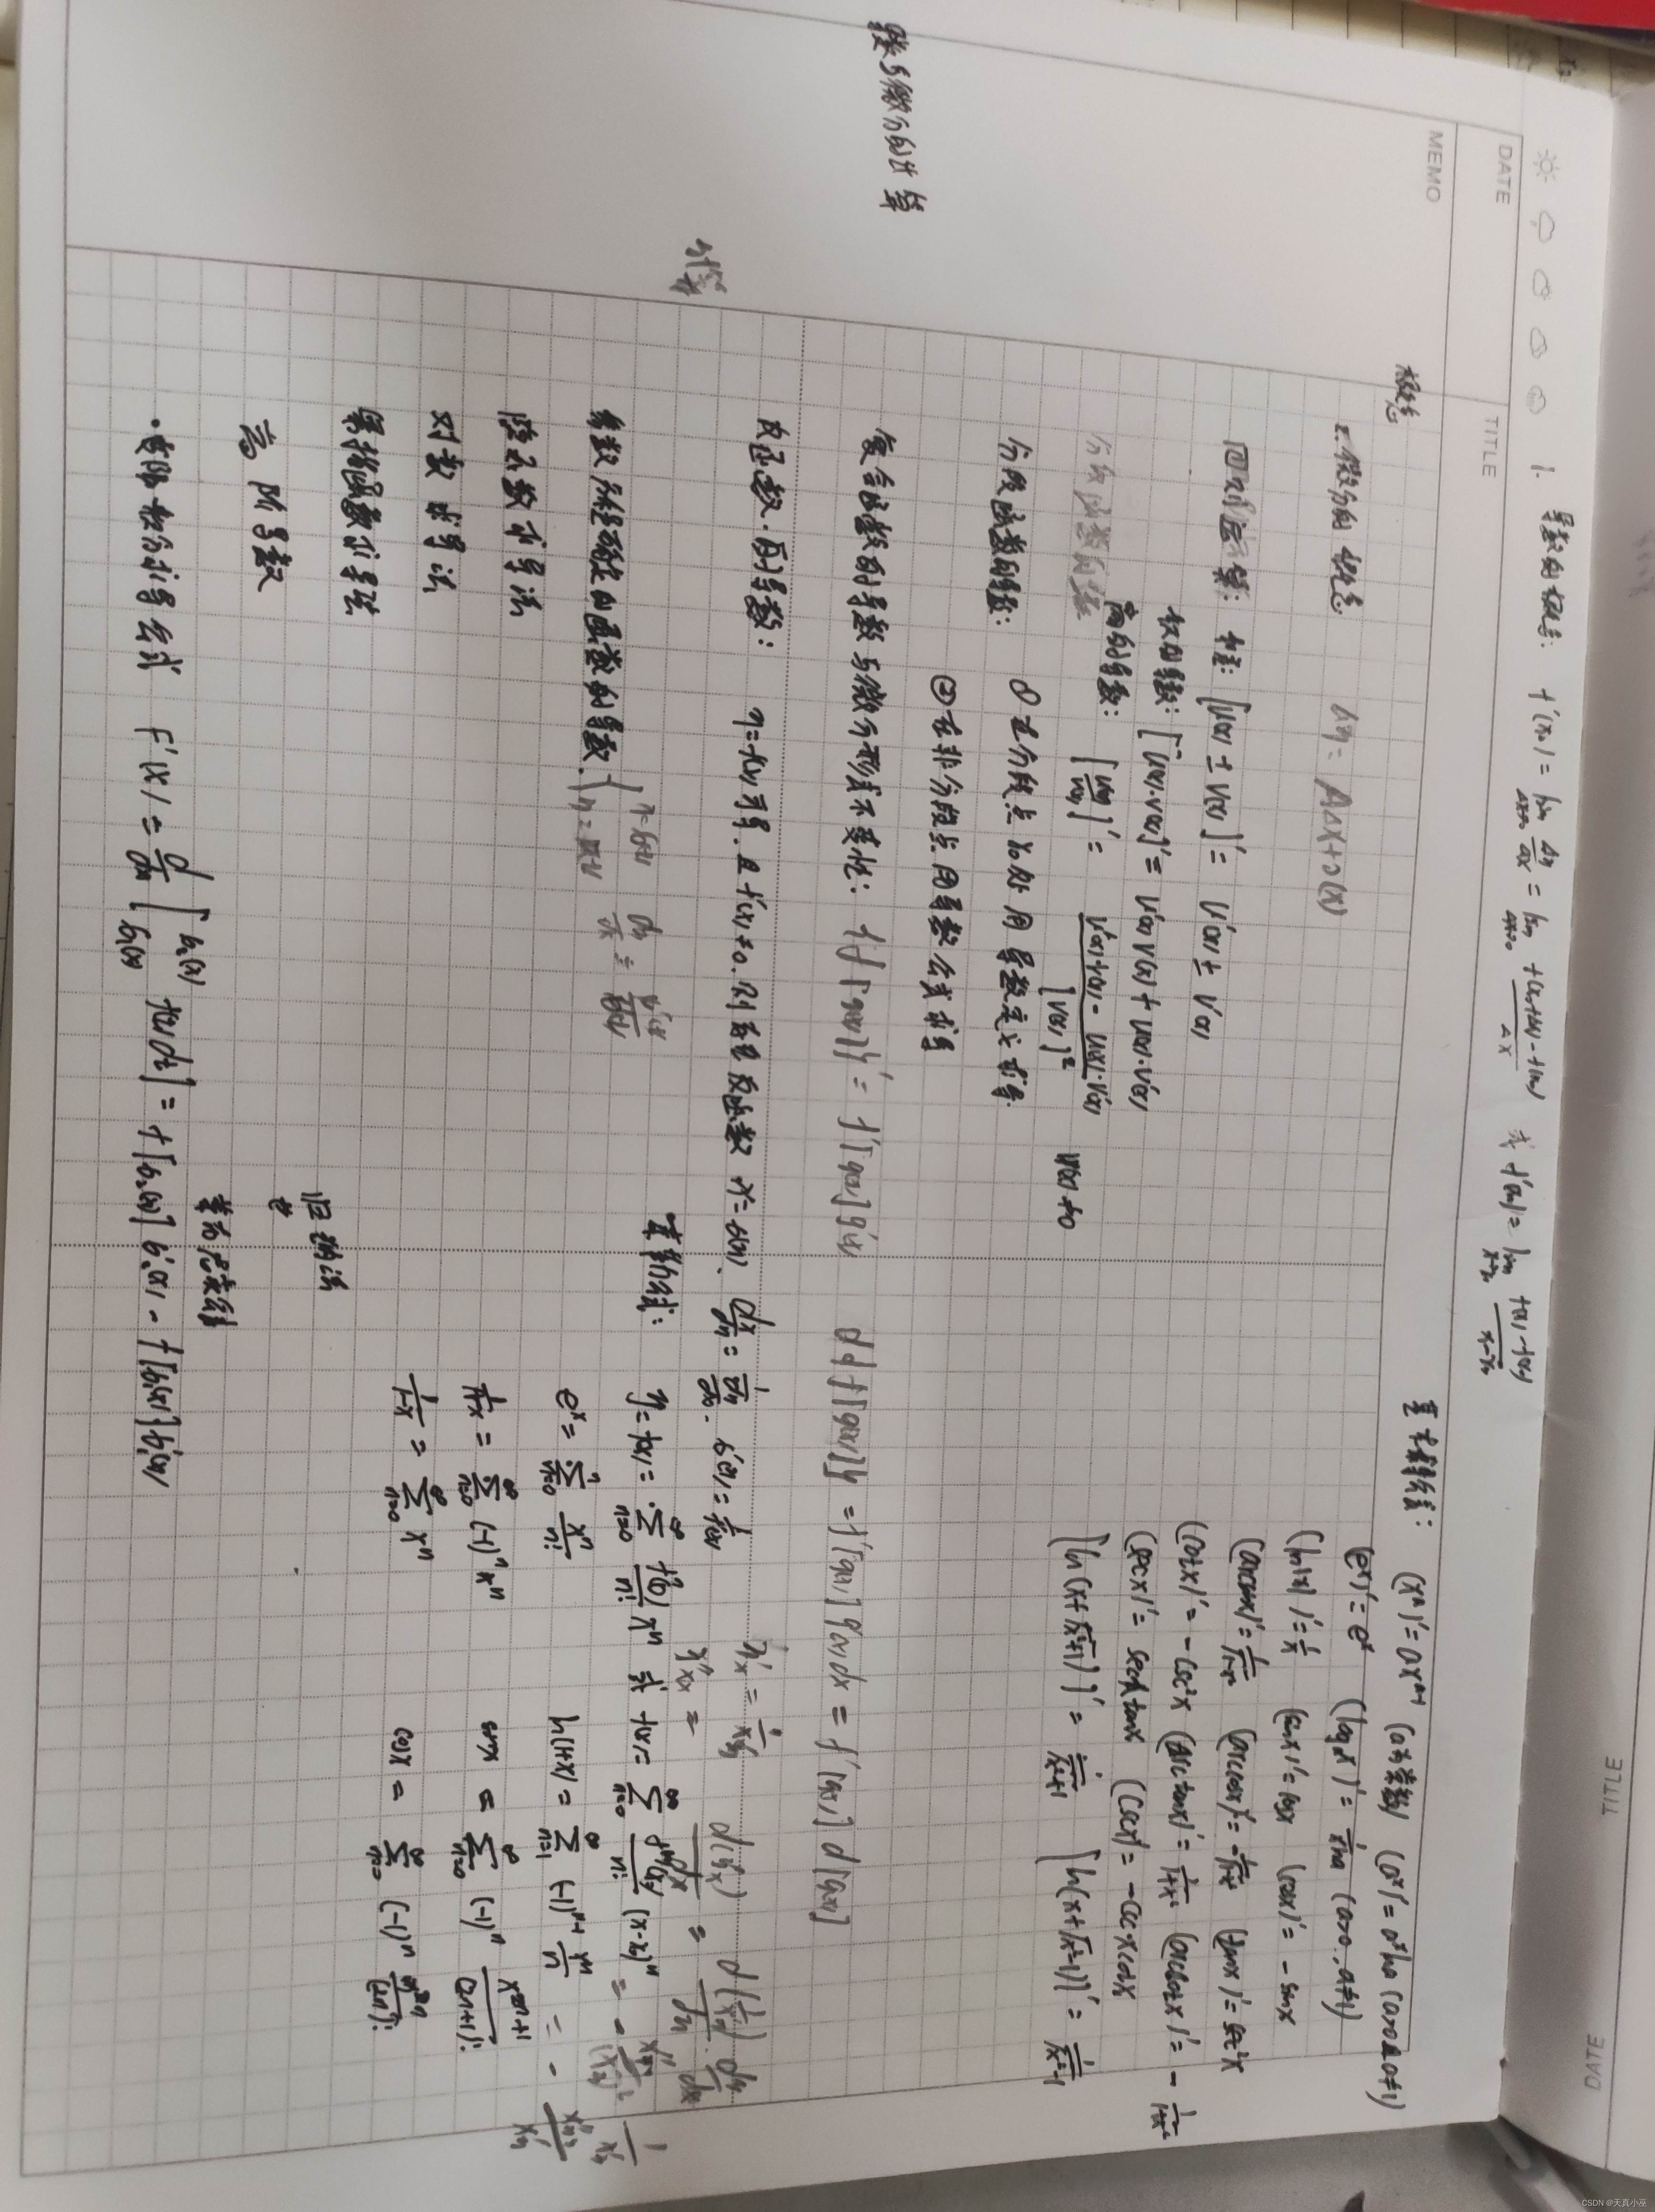 DATE
TITLE
MEMO
TITLE
DATE
导数与微分的计算
概念
1. 导数的概念: f'(x₀) = lim Δx→0 Δy/Δx = lim Δx→0 f(x₀+Δx)-f(x₀) / Δx 或 f'(x₀) = lim x→x₀ f(x)-f(x₀) / x-x₀
2. 微分的概念 Δy = AΔx+o(x)
四则运算: 和差: [u(x) ± v(x)]' = u'(x) ± v'(x)
积的导数: [u(x)·v(x)]' = u'(x)v(x) + u(x)·v'(x)
商的导数: [u(x)/v(x)]' = u'(x)·v(x) - u(x)·v'(x) / [v(x)]² v(x)≠0
分段函数的导数
分段函数的导数: ① 在分段点 x₀处 用 导数定义求导.
② 在非分段点 用导数公式求导
复合函数的导数与微分形式不变性: {f[g(x)]}' = f'[g(x)]g'(x) d{f[g(x)]} = f'[g(x)]g'(x)dx = f'[g(x)]d[g(x)]
反函数的导数: y=f(x)可导. 且 f'(x)≠0. 则存在反函数 x= dx/dy =
参数方程确定的函数的导数
隐函数求导法
对数求导法
幂指函数求导法
高阶导数
归纳法
莱布尼茨公式
·变限积分求导公式 F'(x) = d/dx [ f(t)dt] = f[φ₂(x)]φ₂'(x) - f[φ₁(x)]φ₁'(x)
基本求导公式: (xᵃ)'=axᵃ⁻¹ (a为常数) (aˣ)'=aˣlna (a>0,a≠1)
(eˣ)'=eˣ (logₐx)'=1/xlna (a>0,a≠1)
(ln|x|)'=1/x (sinx)'=cosx (cosx)'=-sinx
(arcsinx)'=1/√1-x² (arccosx)'=-1/√1-x² (tanx)'=sec²x
(cotx)'=-csc²x (arctanx)'=1/1+x² (arccotx)'=-1/1+x²
(secx)'=secxtanx (cscx)'=-cscxcotx
[ln(x+√x²+1)]'=1/√x²+1 [ln(x+√x²-1)]'=1/√x²-1
泰勒公式: y=f(x)=∑ n=0 ∞ f⁽ⁿ⁾(0)/n! xⁿ 或 f(x)=∑ n=0 ∞ f⁽ⁿ⁾(x₀)/n! (x-x₀)ⁿ
eˣ=∑ n=0 ∞ xⁿ/n! ln(1+x)=∑ n=1 ∞ (-1)ⁿ⁻¹ xⁿ/n
1/1+x=∑ n=0 ∞ (-1)ⁿxⁿ sinx=∑ n=0 ∞ (-1)ⁿ x²ⁿ⁺¹/(2n+1)!
1/1-x=∑ n=0 ∞ xⁿ cosx=∑ n=0 ∞ (-1)ⁿ x²ⁿ/(2n)!
CSDN @天真小巫